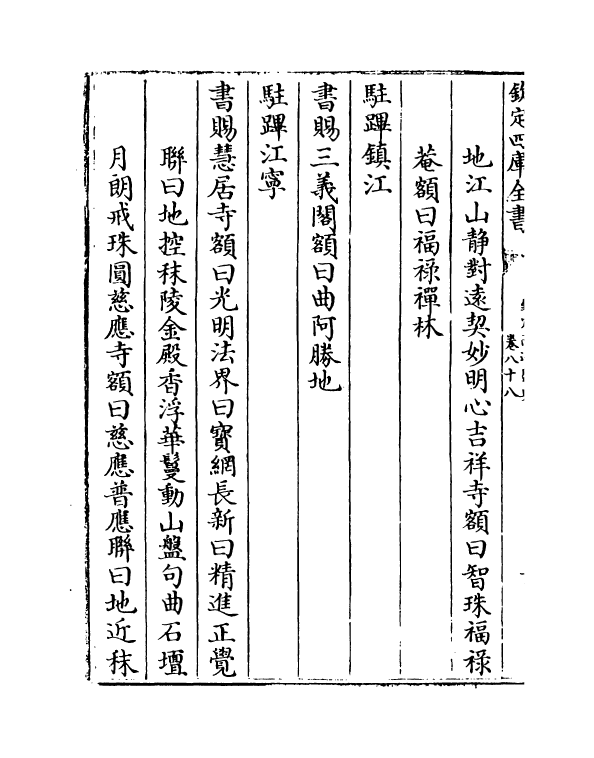 欽定四庫全書
卷八十八
地江山静對遠契妙明心吉祥寺額曰智珠福祿
菴額曰福祿禪林
駐蹕鎮江
書賜三義閣額曰曲阿勝地
駐蹕江寧
書賜慧居寺額曰光明法界曰寳網長新曰精進正覺
聯曰地控秣陵金殿香浮華鬘動山盤句曲石壇
月朗戒珠圓慈應寺額曰慈應普應聯曰地近秣